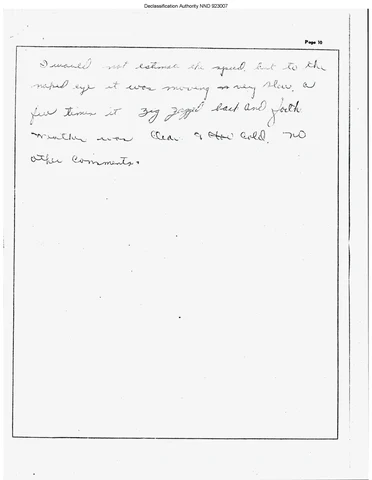 Declassification Authority NND 923007
Page 10
I would not estimate the speed, but to the
naked eye it was moving very slow, a
few times it zig zagged back and forth
weather was clear & cold. no
other comments.